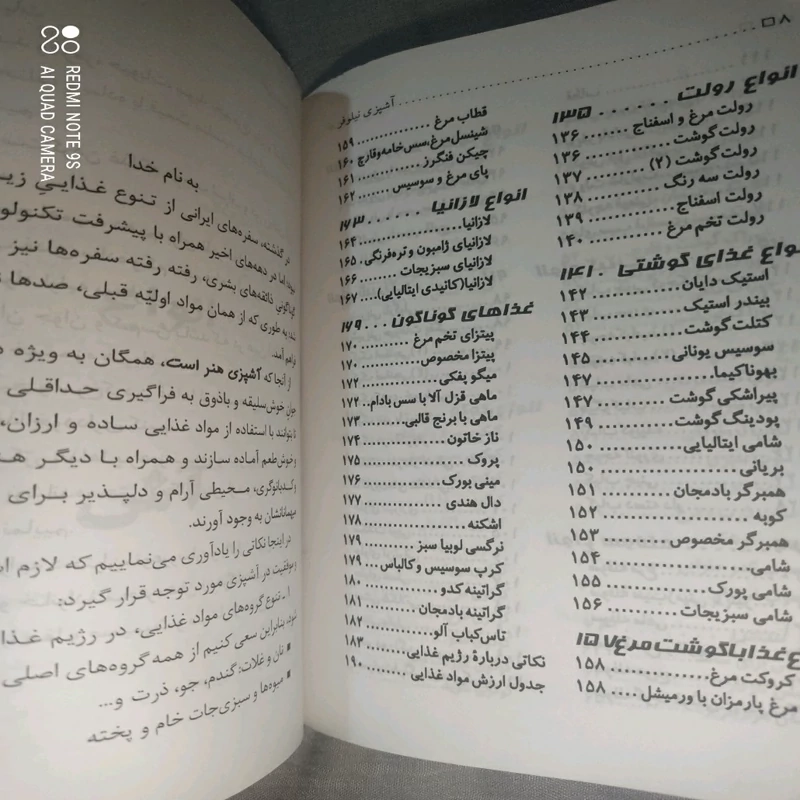 REDMI NOTE 9S
AI QUAD CAMERA
۸
آشپزی نیلوفر
انواع رولت ...... ۱۳۵
رولت مرغ و اسفناج ...... ۱۳۶
رولت گوشت ...... ۱۳۶
رولت گوشت (۲) ...... ۱۳۷
رولت سه رنگ ...... ۱۳۸
رولت اسفناج ...... ۱۳۹
رولت تخم مرغ ...... ۱۴۰
انواع غذای گوشتی . ۱۴۱
استیک دایان ...... ۱۴۲
بیندر استیک ...... ۱۴۳
کتلت گوشت ...... ۱۴۴
سوسیس یونانی ...... ۱۴۵
بهوناکیما ...... ۱۴۷
پیراشکی گوشت ...... ۱۴۷
پودینگ گوشت ...... ۱۴۹
شامی ایتالیایی ...... ۱۵۰
بریانی ...... ۱۵۰
همبرگر بادمجان ...... ۱۵۱
کوبه ...... ۱۵۲
همبرگر مخصوص ...... ۱۵۳
شامی ...... ۱۵۴
شامی پورک ...... ۱۵۵
شامی سبزیجات ...... ۱۵۶
غذا با گوشت مرغ ۱۵۷
کروکت مرغ ...... ۱۵۸
مرغ پارمزان با ورمیشل .... ۱۵۸
قطاب مرغ ...... ۱۵۹
شینسل مرغ،سس خامه و قارچ ۱۶۰
چیکن فنگرز ...... ۱۶۱
پای مرغ و سوسیس ...... ۱۶۲
انواع لازانیا ...... ۱۶۳
لازانیا ...... ۱۶۴
لازانیای ژامبون و تره‌فرنگی . ۱۶۵
لازانیای سبزیجات ...... ۱۶۶
لازانیا(کانیدی ایتالیایی) .... ۱۶۷
غذاهای گوناگون ... ۱۶۹
پیتزای تخم مرغ ...... ۱۷۰
پیتزا مخصوص ...... ۱۷۰
میگو پفکی ...... ۱۷۲
ماهی قزل آلا با سس بادام .. ۱۷۲
ماهی با برنج قالبی ...... ۱۷۳
ناز خاتون ...... ۱۷۴
پروک ...... ۱۷۵
مینی بورک ...... ۱۷۶
دال هندی ...... ۱۷۷
اشکنه ...... ۱۷۸
نرگسی لوبیا سبز ...... ۱۷۹
کرپ سوسیس و کالباس ... ۱۷۹
گراتینه کدو ...... ۱۸۰
گراتینه بادمجان ...... ۱۸۱
تاس‌کباب آلو ...... ۱۸۲
نکاتی دربارهٔ رژیم غذایی .... ۱۸۳
جدول ارزش مواد غذایی .... ۱۹۰
به نام خدا
در گذشته، سفره‌های ایرانی از تنوع غذایی
اما در دهه‌های اخیر همراه با پیشرفت
گوناگونی ذائقه‌های بشری، رفته رفته سفره‌ها نیز
به طوری که از همان مواد اولیّه قبلی، صدها
فراهم آمد.
از آنجا که آشپزی هنر است، همگان به ویژه
جوان خوش‌سلیقه و باذوق به فراگیری حداقلی
تا بتوانند با استفاده از مواد غذایی ساده و ارزان،
و خوش‌طعم آماده سازند و همراه با دیگر
و کدبانوگری، محیطی آرام و دلپذیر برای
مهمانانشان به وجود آورند.
در اینجا نکاتی را یادآوری می‌نماییم که لازم
و موفقیت در آشپزی مورد توجه قرار گیرد:
۱ ـ تنوع گروه‌های مواد غذایی، در رژیم
شود، بنابراین سعی کنیم از همه گروه‌های اصلی
▪ نان و غلات: گندم، جو، ذرت و...
▪ میوه‌ها و سبزی‌جات خام و پخته